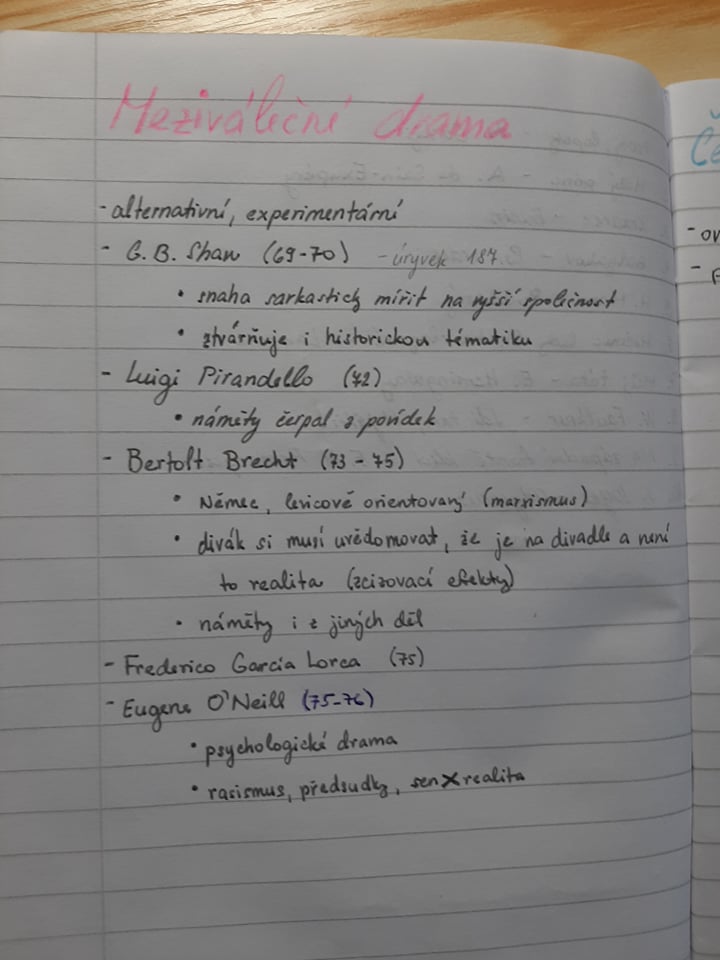 Meziválečné drama
- alternativní, experimentární
- G. B. Shaw (69-70) - úryvek 187
• snaha sarkasticky mířit na vyšší společnost
• ztvárňuje i historickou tématiku
- Luigi Pirandello (72)
• náměty čerpal z povídek
- Bertolt Brecht (73 - 75)
• Němec, levicově orientovaný (marxismus)
• divák si musí uvědomovat, že je na divadle a není
to realita (zcizovací efekty)
• náměty i z jiných děl
- Frederico García Lorca (75)
- Eugene O'Neill (75-76)
• psychologické drama
• rasismus, předsudky, sen X realita